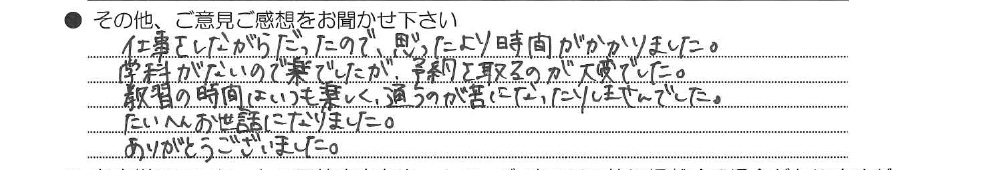 ● その他、ご意見ご感想をお聞かせ下さい
仕事をしながらだったので、思ったより時間がかかりました。
学科がないので楽でしたが、予約を取るのが大変でした。
教習の時間はいつも楽しく、通うのが苦になったりしませんでした。
たいへんお世話になりました。
ありがとうございました。